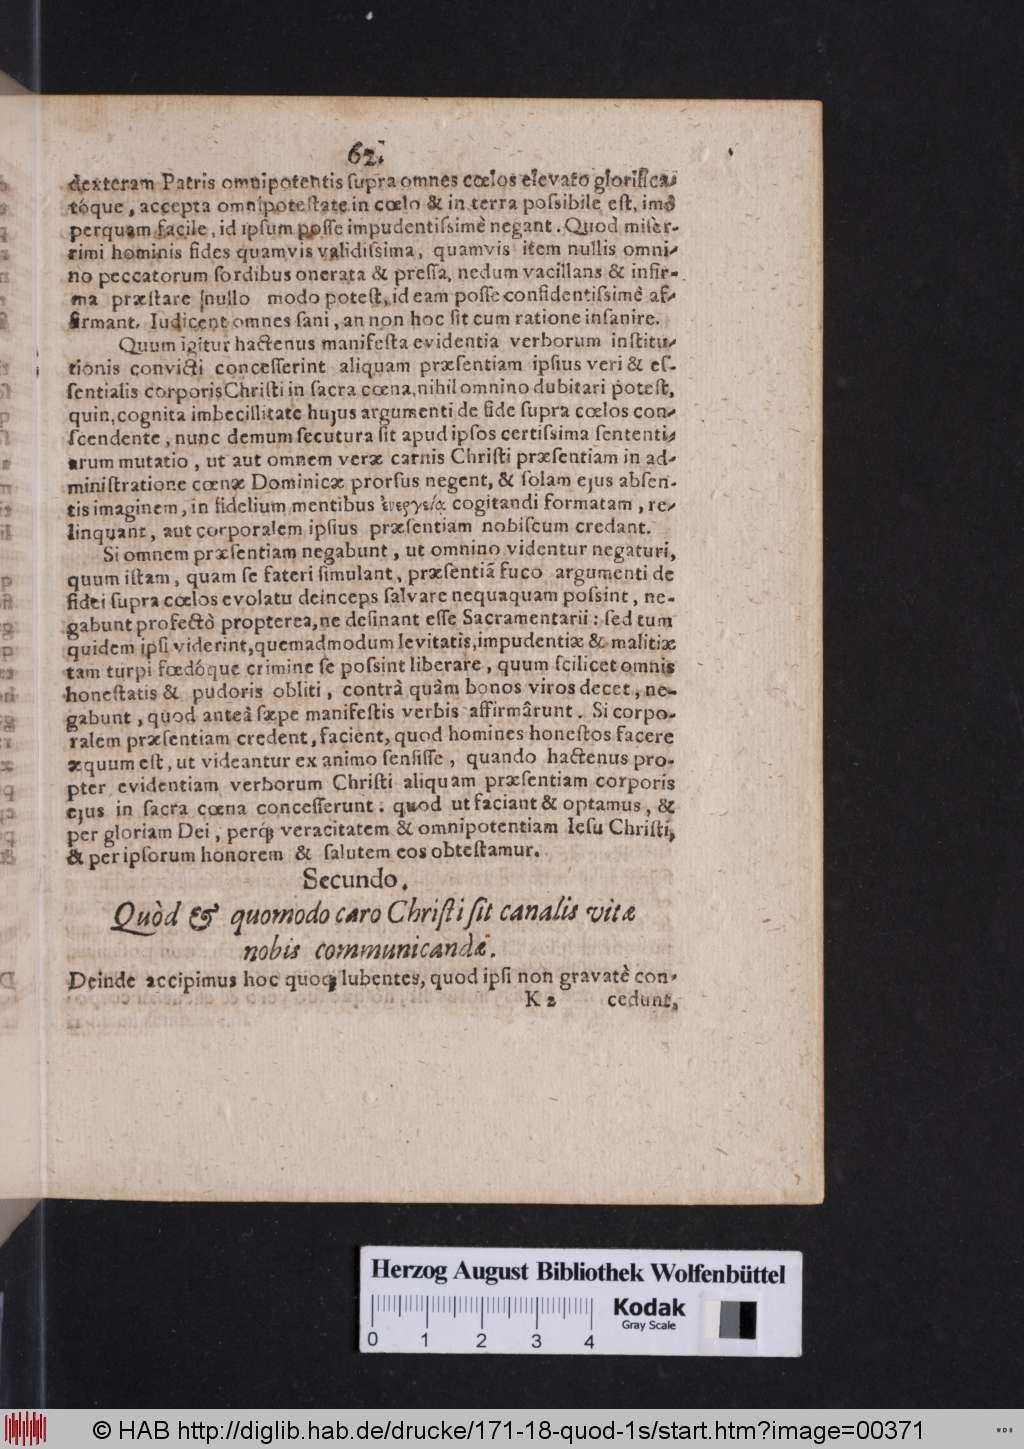 62.
dexteram Patris omnipotentis ſupra omnes cœlos elevato glorifica-
tóque, accepta omnipoteſtate in cœlo & in terra poſsibile eſt, imò
perquam facile, id ipſum poſſe impudentiſsimè negant. Quod miſer-
rimi hominis fides quamvis validiſsima, quamvis item nullis omni-
no peccatorum ſordibus onerata & preſſa, nedum vacillans & infir-
ma præſtare nullo modo poteſt, id eam poſſe confidentiſsimè af-
firmant. Iudicent omnes ſani, an non hoc ſit cum ratione inſanire.
Quum igitur hactenus manifeſta evidentia verborum inſtitu-
tionis convicti conceſſerint aliquam præſentiam ipſius veri & eſ-
ſentialis corporis Chriſti in ſacra cœna, nihil omnino dubitari poteſt,
quin, cognita imbecillitate hujus argumenti de fide ſupra cœlos con-
ſcendente, nunc demum ſecutura ſit apud ipſos certiſsima ſententi-
arum mutatio, ut aut omnem veræ carnis Chriſti præſentiam in ad-
miniſtratione cœnæ Dominicæ prorſus negent, & ſolam ejus abſen-
tis imaginem, in fidelium mentibus ἐνεργείᾳ cogitandi formatam, re-
linquant, aut corporalem ipſius præſentiam nobiſcum credant.
Si omnem præſentiam negabunt, ut omnino videntur negaturi,
quum iſtam, quam ſe fateri ſimulant, præſentiã fuco argumenti de
fidei ſupra cœlos evolatu deinceps ſalvare nequaquam poſsint, ne-
gabunt profectò propterea, ne deſinant eſſe Sacramentarii: ſed tum
quidem ipſi viderint, quemadmodum levitatis, impudentiæ & malitiæ
tam turpi fœdóque crimine ſe poſsint liberare, quum ſcilicet omnis
honeſtatis & pudoris obliti, contrà quàm bonos viros decet, ne-
gabunt, quod anteà ſæpe manifeſtis verbis affirmârunt. Si corpo-
ralem præſentiam credent, facient, quod homines honeſtos facere
æquum eſt, ut videantur ex animo ſenſiſſe, quando hactenus pro-
pter evidentiam verborum Chriſti aliquam præſentiam corporis
ejus in ſacra cœna conceſſerunt: quod ut faciant & optamus, &
per gloriam Dei, perq́; veracitatem & omnipotentiam Ieſu Chriſti,
& per ipſorum honorem & ſalutem eos obteſtamur.
Secundo.
Quòd & quomodo caro Chriſti ſit canalis vitæ
nobis communicandæ.
Deinde accipimus hoc quoq; lubentes, quod ipſi non gravatè con-
K 2 cedunt,
Herzog August Bibliothek Wolfenbüttel
Kodak
Gray Scale
0 1 2 3 4
© HAB http://diglib.hab.de/drucke/171-18-quod-1s/start.htm?image=00371